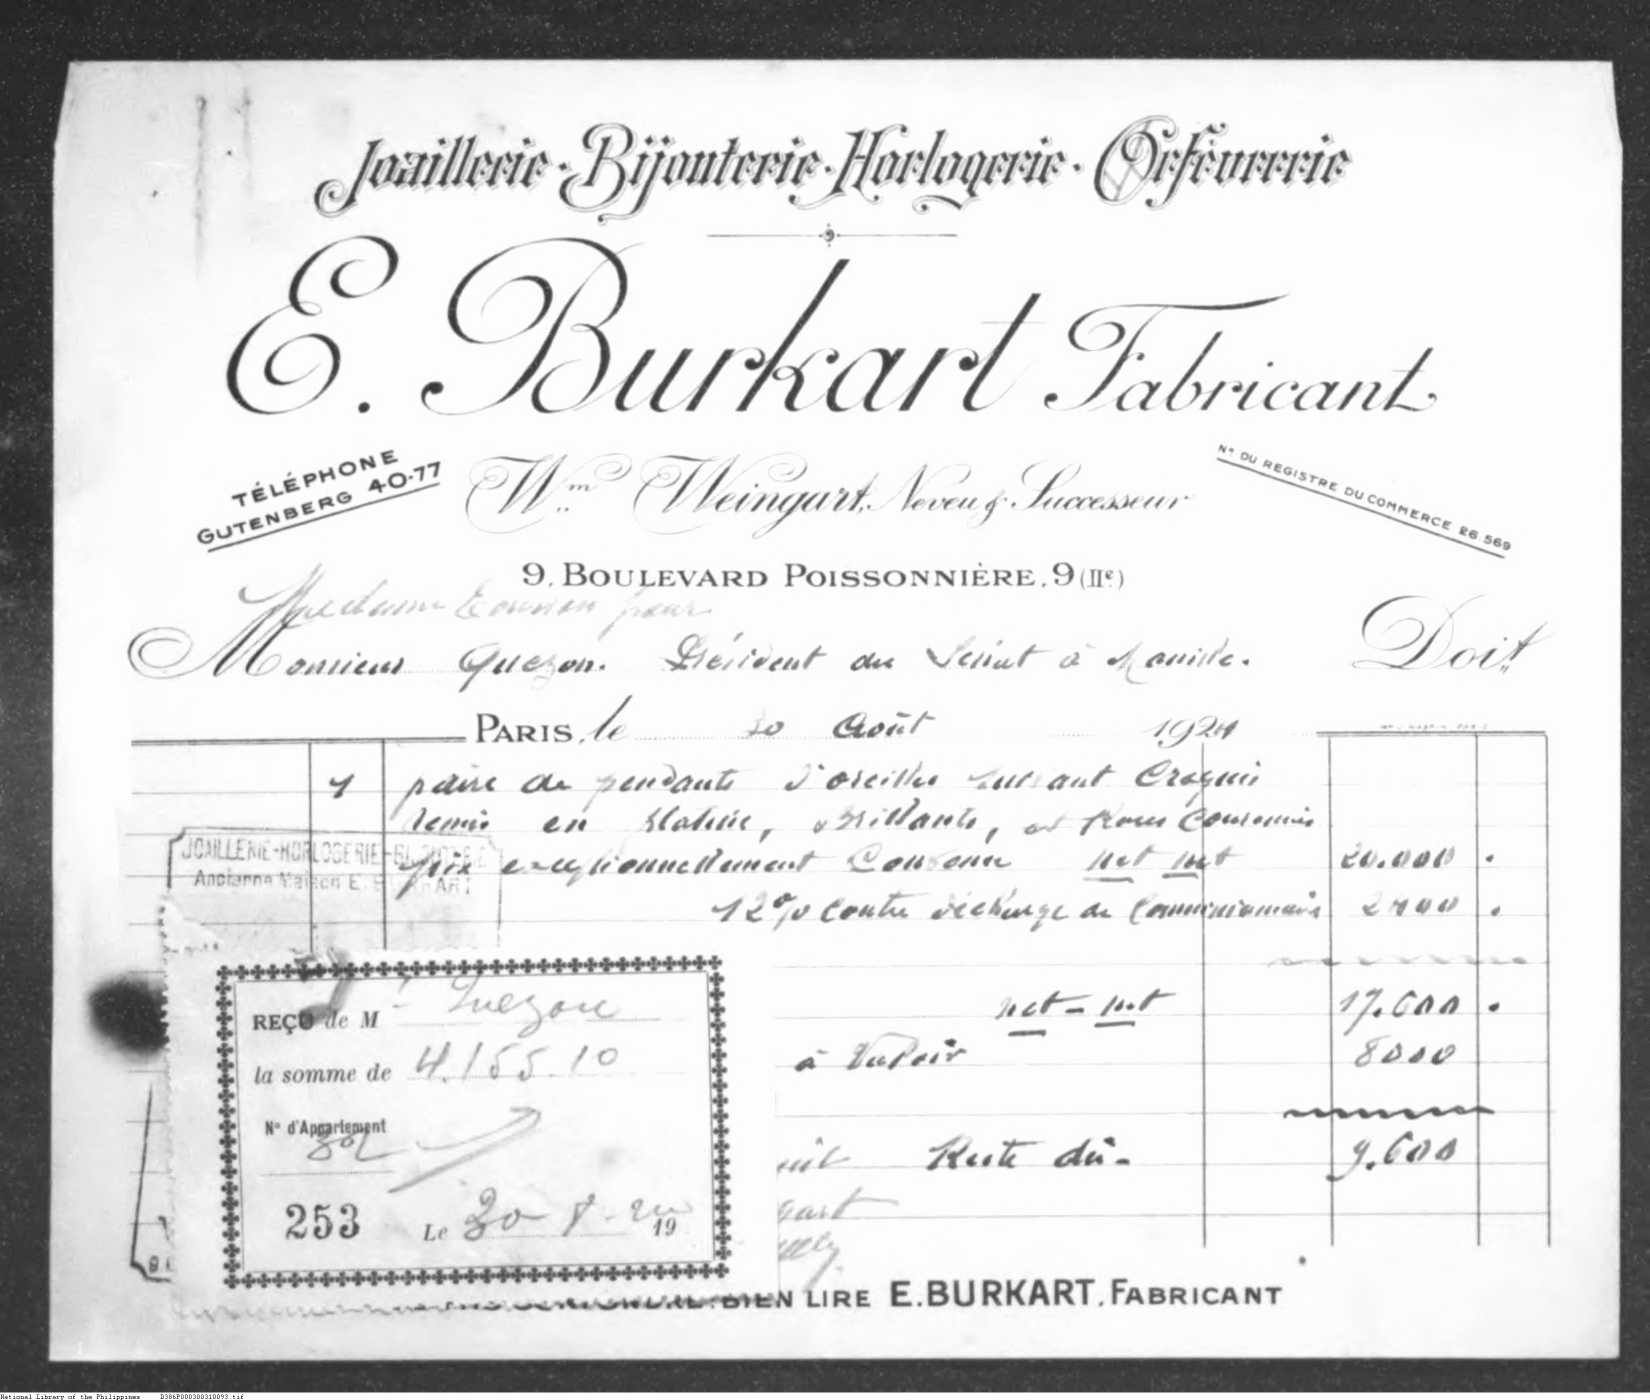 Joaillerie · Bijouterie · Horlogerie · Orfèvrerie
E. Burkart Fabricant
TÉLÉPHONE
GUTENBERG 40·77
Wm Weingart, Neveu & Successeur
N° DU REGISTRE DU COMMERCE 26.569
9, BOULEVARD POISSONNIÈRE, 9 (IIe)
Madame pour
Monsieur Quezon. Président du Sénat à Manille. Doit
PARIS, le 30 Août 1924
1 paire de pendants d'oreilles suivant Croquis
remis en platine, brillants, et Roses Couronnées
prix exceptionnellement Convenu net net 20.000.
12% Contre décharge de Commissionnaire 2400.
net - net 17.600.
à Valoir 8000
Reste dû - 9.600
JOAILLERIE-HORLOGERIE-BIJOUTERIE
Ancienne Maison E. BURKART
REÇU de M Quezon
la somme de 4.155.10
N° d'Appartement
253 Le 30 - 8 - 19
BIEN LIRE E. BURKART, FABRICANT
National Library of the Philippines D386P000300310093.tif